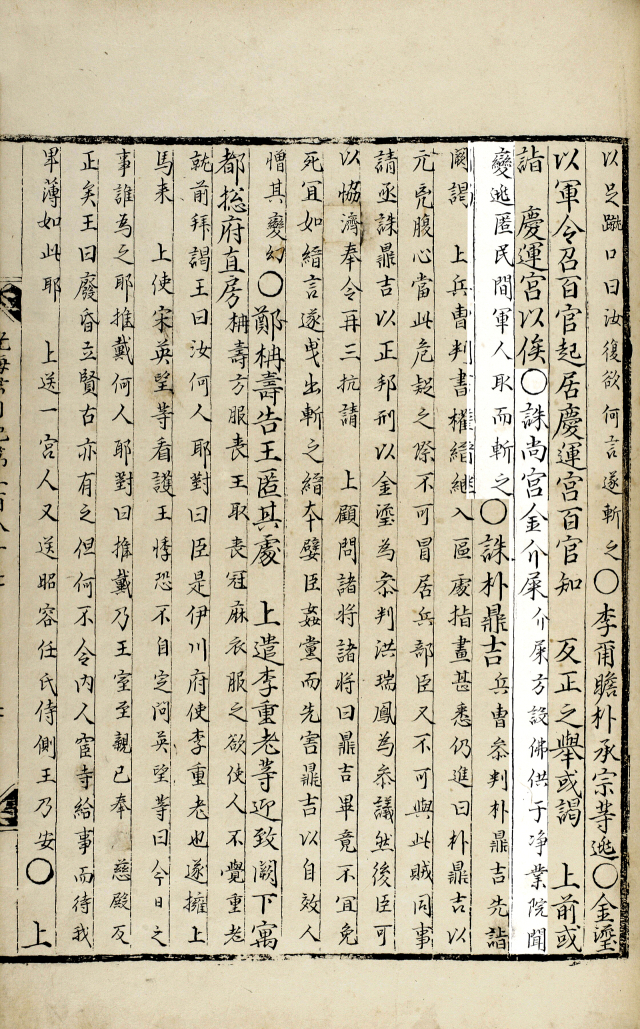 以足蹴口曰汝復欲何言遂斬之〇李爾瞻朴承宗等逃〇金瑬
以軍令召百官起居慶運宮百官知 反正之擧或謁 上前或
詣 慶運宮以俟〇誅尚宮金介屎介屎方設佛供于净業院聞
變逃匿民間軍人取而斬之〇誅朴鼎吉兵曹叅判朴鼎吉先詣
闕謁 上兵曹判書權縉継入區處指畫甚悉仍進曰朴鼎吉以
元兇腹心當此危疑之際不可冒居兵部臣又不可與此賊同事
請亟誅鼎吉以正邦刑以金瑬為叅判洪瑞鳳為叅議然後臣可
以恊濟奉令再三抗請 上顧問諸將諸將曰鼎吉畢竟不宜免
死宜如縉言遂曳出斬之縉本嬖臣姦黨而先害鼎吉以自效人
憎其變幻〇鄭枏壽告王匿其處 上遣李重老等迎致闕下寓
都㧾府直房枏壽方服喪王取喪冠麻衣服之欲使人不覺重老
就前拜謁王曰汝何人耶對曰臣是伊川府使李重老也遂擁上
馬来 上使宋英望等看護王悸恐不自定问英望等曰今日之
事誰為之耶推戴何人耶對曰推戴乃王室至親已奉 慈殿反
正矣王曰廢昏立賢古亦有之但何不令内人宦寺給事而待我
卑薄如此耶 上送一宮人又送昭容任氏侍側王乃安〇 上